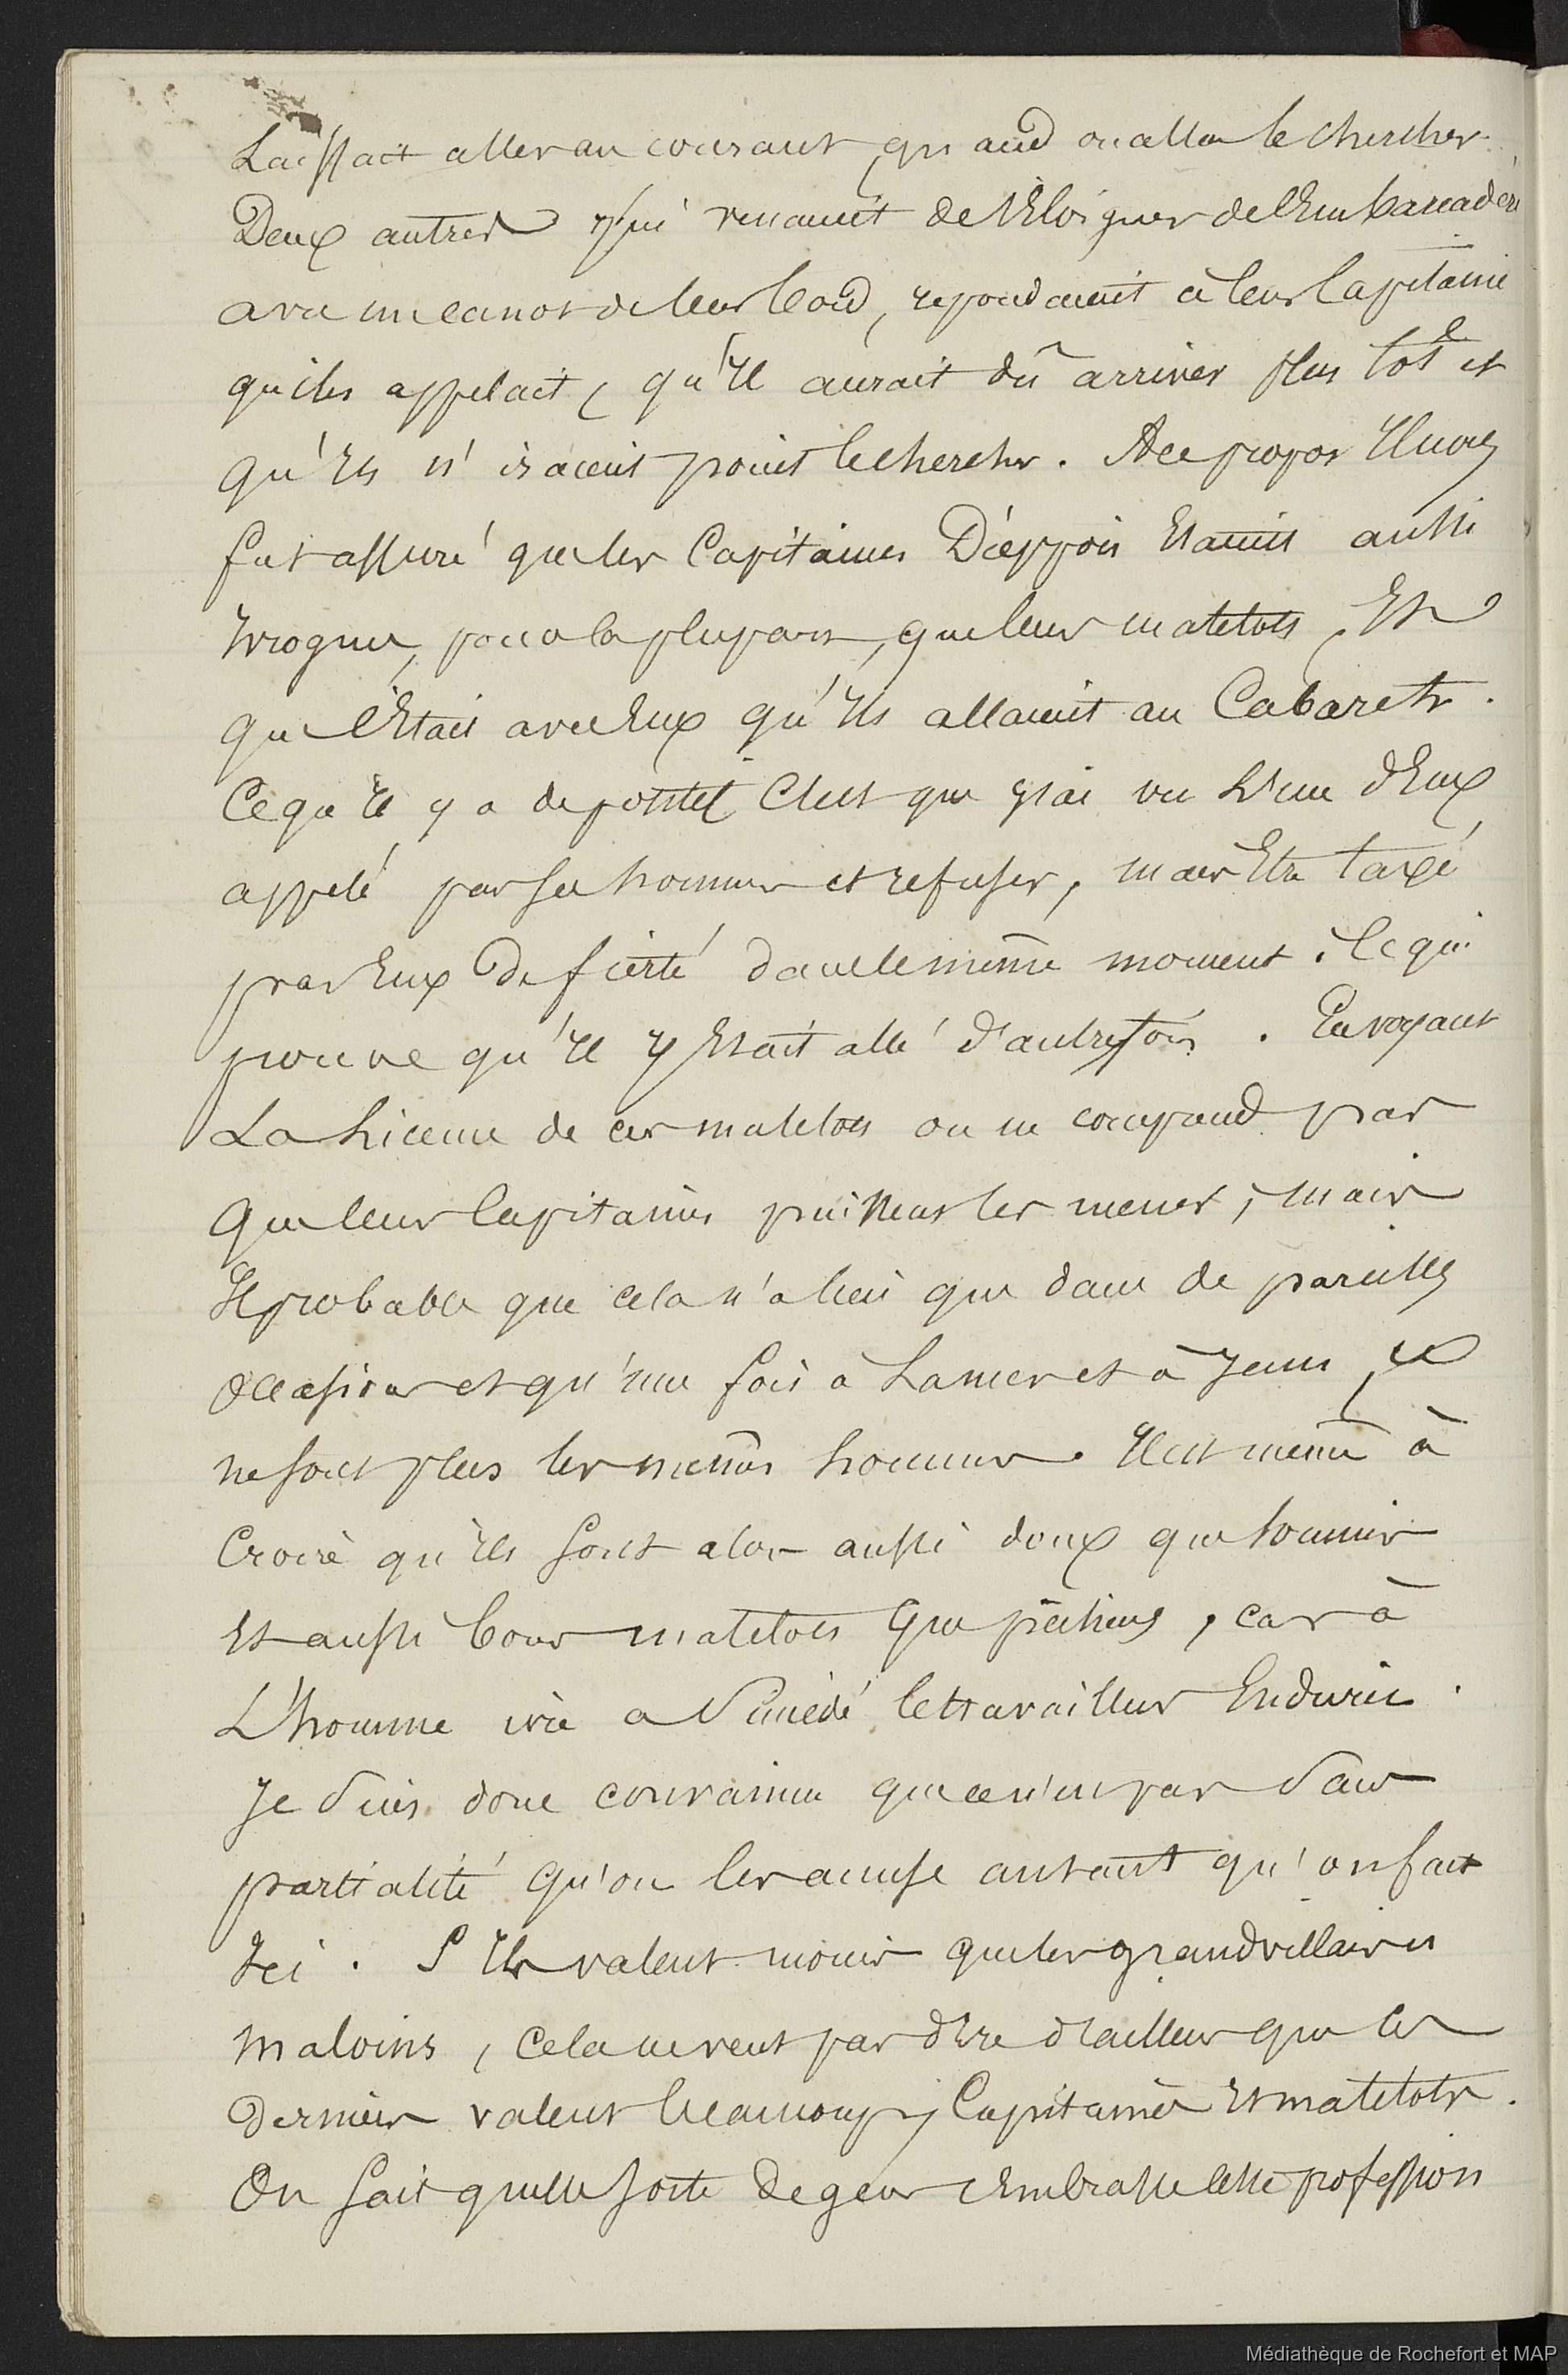 Laissait aller au courant, quand on alla le chercher.
Deux autres qui venaient de s'Eloigner de l'Embarcadère
avec un canot de leur bord, repondaient à leur Capitaine
qui les appelait, qu'Il aurait dû arriver plus tôt et
qu'Ils n'iraient point le chercher. A ce propos Il nous
fut assuré que les Capitaines Dieppois Etaient aussi
Ivrognes, pour la plupart, que leurs matelots, Et
que c'Etait avec Eux qu'Ils allaient au Cabarets.
Ce qu'Il y a de positif C'est que j'ai vu L'un d'Eux
appelé par ses hommes et refuser, mais Etre taxé
par Eux de fierté dans le même moment. Ce qui
prouve qu'Il y Etait allé d'autrefois. En voyant
La Licence de ces matelots on ne comprend pas
que leurs Capitaines puissent les mener, mais
Il probable que cela n'a lieu que dans de pareilles
occasions et qu'une fois à La mer et à Jeun, ce
ne sont plus les mêmes hommes. Il est même à
Croire qu'Ils sont alors aussi doux que soumis
Et aussi bons matelots que pêcheurs, car à
L'homme ivre a Succédé le travailleur Endurci.
Je Suis donc convaincu que ce n'est pas Sans
partialité qu'on les accuse autant qu'on fait
Ici. S'Ils valent moins que les grandvillais et
maloins, Cela ne veut pas dire d'ailleurs que ces
derniers valent beaucoup, Capitaines Et matelots.
On sait quelle sorte de gens Embrasse cette profession
Médiathèque de Rochefort et MAP